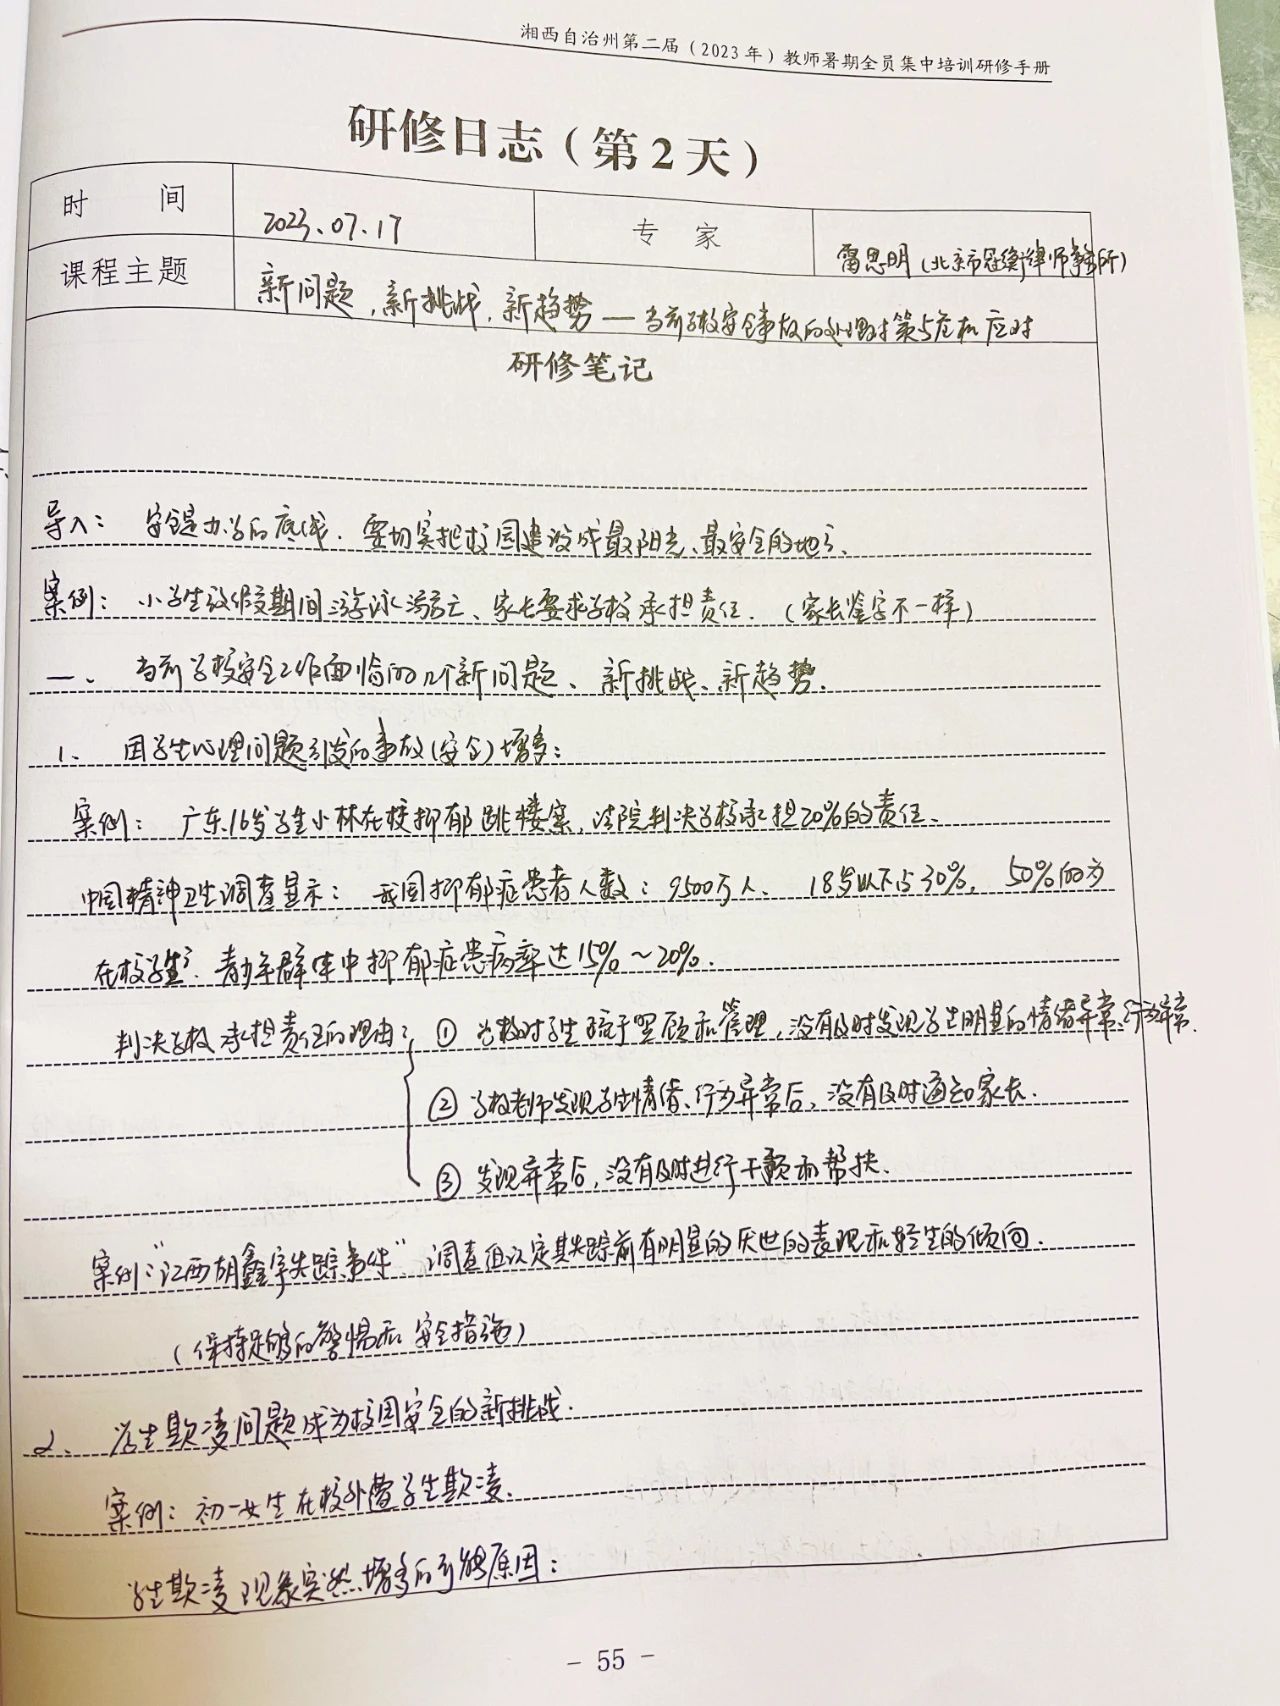 湘西自治州第二届（2023年）教师暑期全员集中培训研修手册
研修日志（第2天）
时 间 2023.07.17 专 家 雷思明（北京市冠衡律师事务所）
课程主题 新问题，新挑战，新趋势——当前学校安全事故的处理对策与危机应对
研修笔记
导入：安全是办学的底线．要切实把校园建设成最阳光、最安全的地方、
案例：小学生放假期间游泳溺亡、家长要求学校承担责任．（家长鉴字不一样）
一、当前学校安全工作面临的几个新问题、新挑战、新趋势．
1、因学生心理问题引发的事故（安全）增多：
案例：广东16岁学生小林在校抑郁跳楼案，法院判决学校承担20%的责任、
中国精神卫生调查显示：我国抑郁症患者人数：9500万人、18岁以下占30%，50%的为
在校学生．青少年群体中抑郁症患病率达15%～20%．
判决学校承担责任的理由：①学校对学生疏于照顾和管理，没有及时发现学生明显的情绪异常、行为异常．
②学校老师发现学生情绪、行为异常后，没有及时通知家长．
③发现异常后，没有及时进行干预和帮扶．
案例：“江西胡鑫宇失踪事件”调查组认定其失踪前有明显的厌世的表现和轻生的倾向．
（保持足够的警惕和安全措施）
2、学生欺凌问题成为校园安全的新挑战．
案例：初一女生在校外遭学生欺凌．
学生欺凌现象突然增多的可能原因：
- 55 -